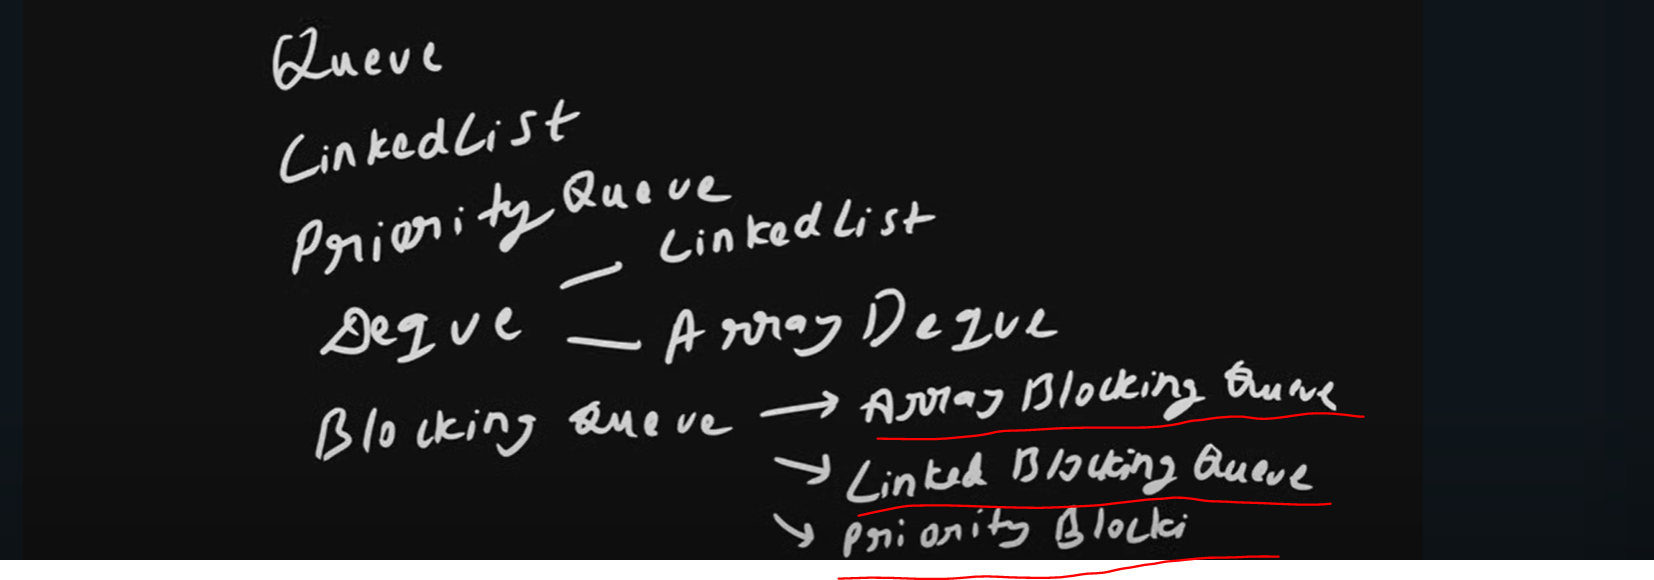 Queue
LinkedList
Priority Queue
Deque — LinkedList
— Array Deque
Blocking Queue → Array Blocking Queue
→ Linked Blocking Queue
→ Priority Blocki